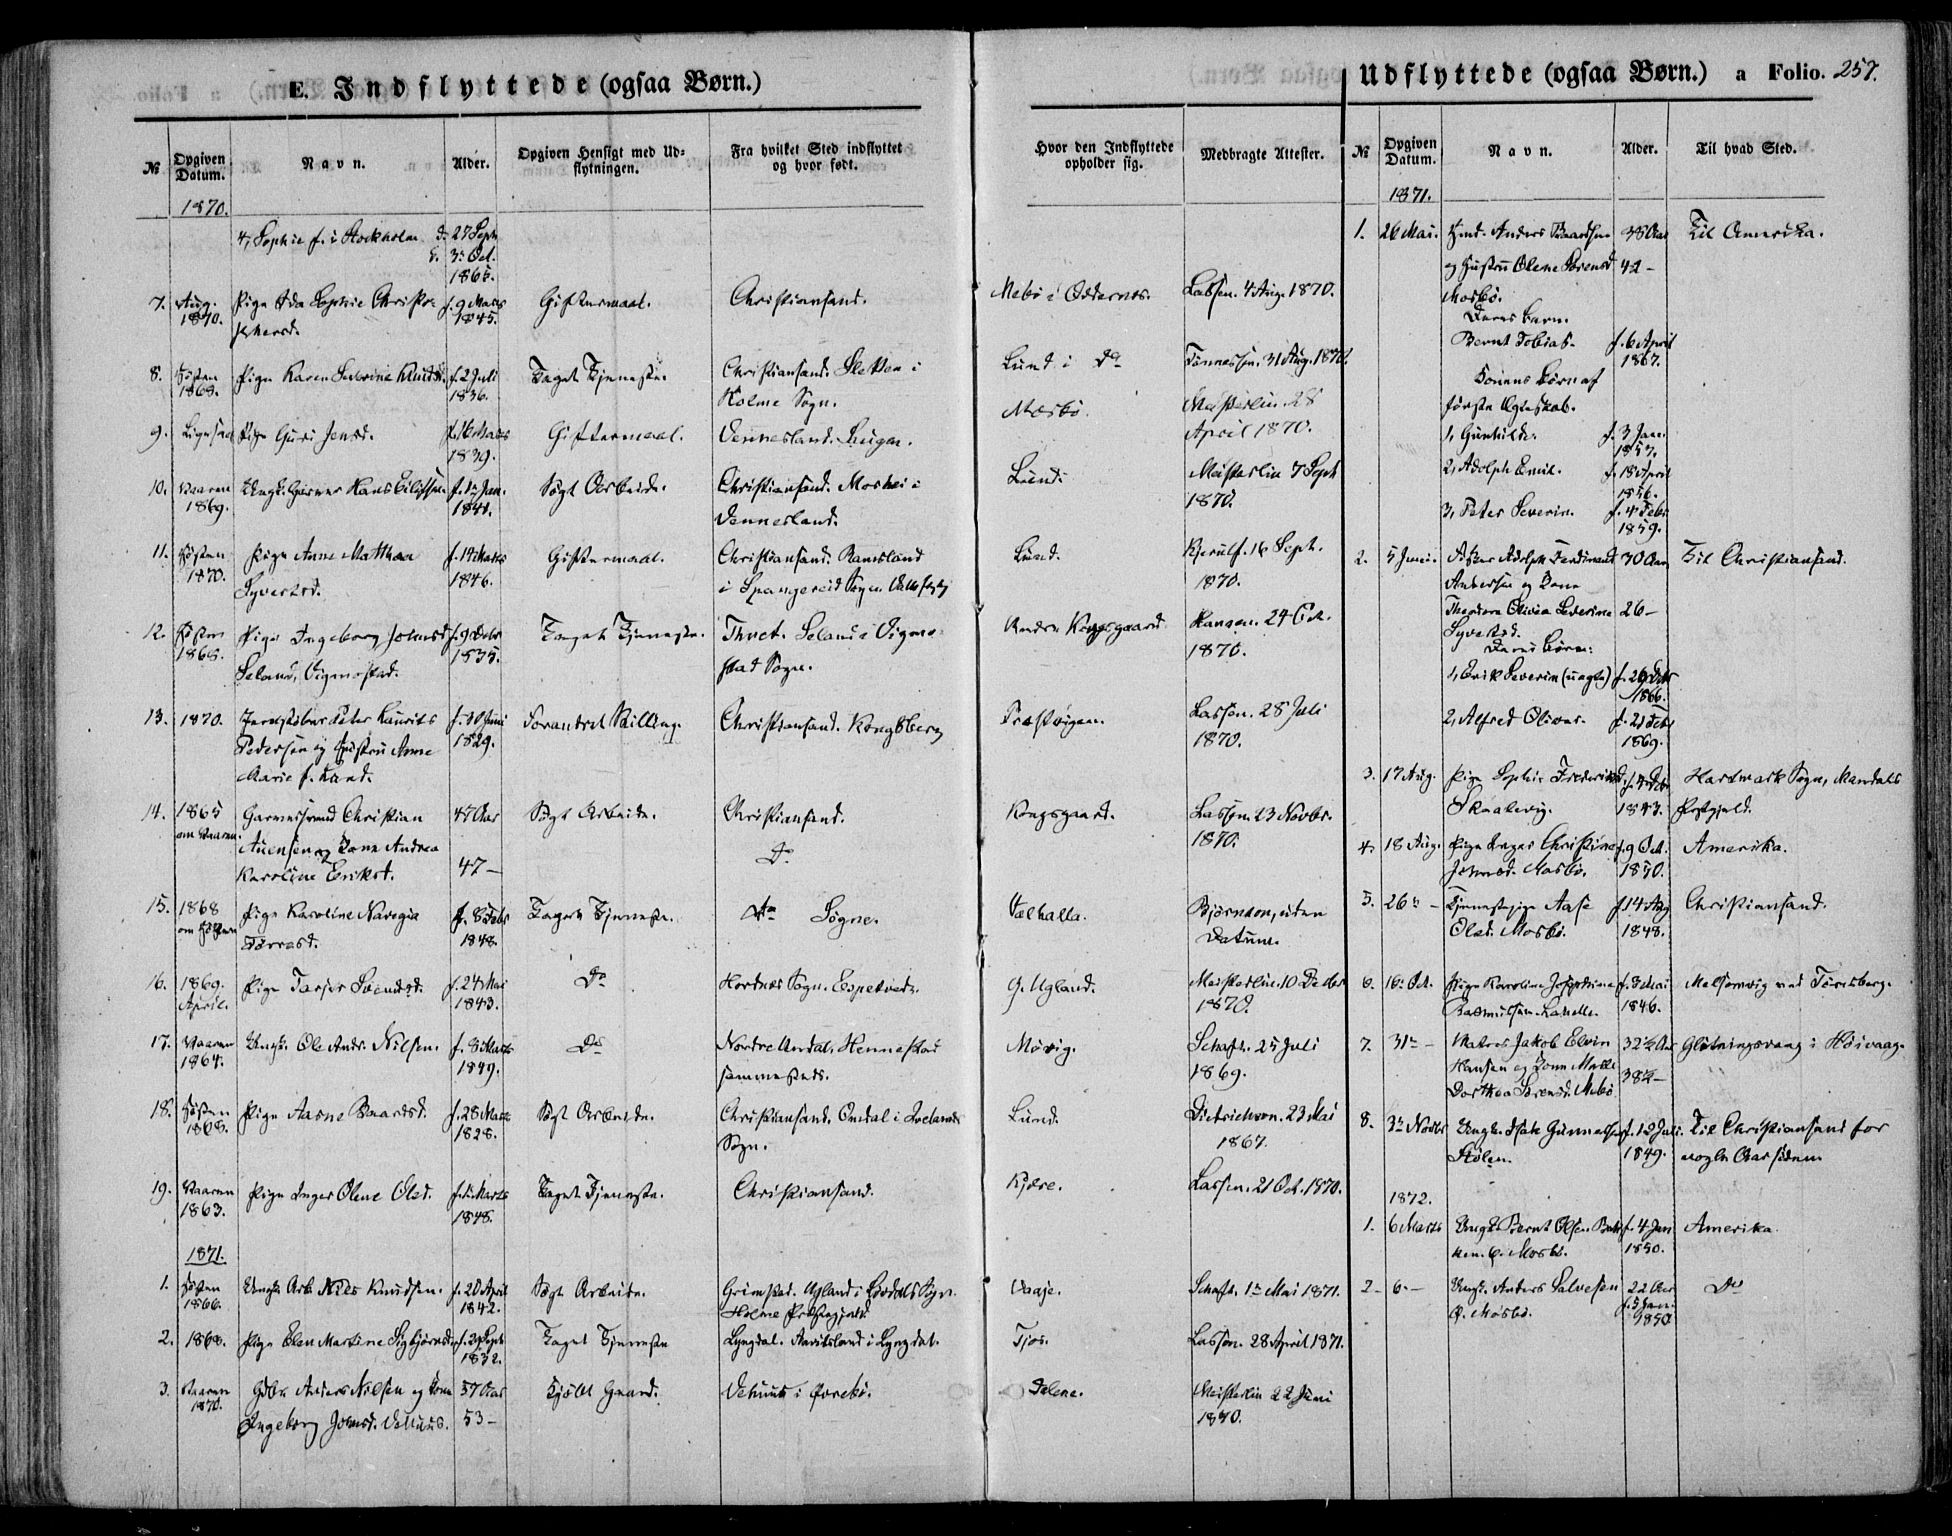 E. Indflyttede (ogsaa Børn.)
No
Opgiven Datum.
Navn.
Alder.
Opgiven Hensigt med Ud-
flytningen.
Fra hvilket Sted indflyttet
og hvor født.
Hvor den Indflyttede
opholder sig.
Medbragte Attester.
1870.
4, Sophie f. i Stockholm d. 27 Septr
3 Oct.
1865.
7. Aug. Pige Ida Sophie Christo- f. 9 Marts Giftermaal. Christiansand. Mebø i Oddernes. Lassen. 4 Aug. 1870.
1870. phersd. 1845.
8. Høsten Pige Karen Severine Knudsd. f. 2 Juli Taget Tjeneste. Christiansand. Sletten i Lund i Do Tønnessen. 31 Aug. 1870.
1868. 1836. Holme Sogn.
9. Ligesaa Pige Guri Jensd. f. 16 Marts Giftermaal. Vennesland. Mosbø. Meisterlin. 28
1839. April 1870.
10. Vaaren Ungk. Garver Hans Eilefsen f. 1 Jan. Søgt Arbeide. Christiansand. Moshei i Lund. Meisterlin 7 Septr
1869. 1841. Vennesland. 1870.
11. Høsten Pige Anne Matthea f. 14 Marts Giftermaal. Christiansand. Ramsland Lund. Kjerulf. 16 Septr.
1870. Syvertsd. 1846. i Spangereid Sogn. 1870.
12. Høsten Pige Ingeborg Johnsd. f. 9 Febr Taget Tjeneste. Thvet. Seland i Vigmo- Kongsgaard Hansen. 24 Oct.
1868. Seland, Vigmostad. 1835. stad Sogn. 1870.
13. 1870. Peter Laurits f. 30 Juni Forandret Stilling. Christiansand. Kongsberg Lassen. 28 Juli
Pedersen og Hustru Anne 1829. 1870.
Marie f. Lund.
14. 1865 Garversvend Christian 47 Aar Søgt Arbeide. Christiansand. Kongsgaard. Lassen. 23 Novbr.
om Vaaren. og Kone Andrea Do 1870.
Karoline Eriksd. 47 –
15. 1868 Pige Karoline Navegia f. 8 Febr Taget Tjeneste. Do Søgne. Valhalla. Bjørnson, uden
om Høsten Torresd. 1848. Datum.
16. 1869. Pige Tarjer Svendsd. f. 24 Mai Do Hordnes Sogn. Espetveit. G. Ugland. Meisterlin. 10 Decbr
April. 1843. 1870.
17. Vaaren Ungk. Ole Andr. Nilsen. f. 8 Marts Do Nordre Undal. Hennestad Møvig. Schaft. 25 Juli
1867. 1849. sammesteds. 1869.
18. Høsten Pige Aasne Baardsd. f. 28 Marts Søgt Arbeide. Christiansand. Omdal i Ivelands Lund. Dietrichson. 23 Mai
1868. 1828. Sogn. 1867.
19. Vaaren Pige Inger Olene Olsd. Marts Taget Tjeneste. Christiansand. Kjære. Lassen. 21 Oct. 1870.
1863. 1848.
1871.
1. Høsten Ungk. Arb. Nils Knudsen. f. 20 April Søgt Arbeide. Grimstad. Ugland i Vaaje. Schaft. 1 Mai 1871.
1866. 1842. Holme Præstegjeld.
2. 1868. Pige Elen Martine Sigbjørnsd. Septr Taget Tjeneste Lyngdal. i Lyngdal. Tjos. Lassen. 28 April 1871.
1852.
3. Vaaren Anders Nilsen og Kone 57 Aar Kjøbt Gaard. i Øvrebø. Dalene. Meisterlin 22 Juni
1870. Ingeborg Johnsd. 53 – 1870.
Udflyttede (ogsaa Børn.) a Folio. 257.
No
Opgiven Datum.
Navn.
Alder.
Til hvad Sted.
1871.
1. 26 Mai. Anders Baardsen 38 Aar Til Amerika.
og Hustru Olene Sørensd. 42 –
Mosbø.
Deres Børn.
Bernt Tobias. f. 6 April
1867.
Konens Børn af
første Ægteskab.
1, Gunhilde. f. 3 Jan.
1857.
2, Adolph Emil. f. 18 April
1856.
3, Peter Severin. f. 4 Febr
1859.
2. 5 Juni. Adolph Ferdinand 30 Aar Til Christiansand.
Andersen og Kone
Theodora Olivia Severine 26 –
Syvertsd.
Deres Børn:
1, Erik Severin (uægte) f. 26 Febr
1866.
2, Alfred Oliver. f. 21 Febr
1869.
3. 17 Aug. Pige Sophie Frederiksd. Hartmark Sogn, Mandals
Skaalevig. 1843. Prstgjeld.
4. 18 Aug. Pige Inger Christine f. 9 Oct. Amerika.
Johnsd. Mosbø. 1850.
5. 26 – Tjenestepige Aase f. 14 Aug Christiansand.
Olsd. Mosbø. 1848.
6. 16 Oct. Pige Karoline Josephine f. 8 Mai Melsomvig ved Tønsberg.
Rasmussen 1846.
7. 31 – Matros Jakob Elvin 32½ Aar Glatningsvaag i Høivaag.
Hansen og Kone Malle 38½ –
Dorthea Sørensd. Mebø
8. 3 Novbr Ungk. Isak Gunnelsen f. 12 Juli Til Christiansand for
Stølen. 1849. nogle Aar siden
1872.
1. 6 Marts Ungk. Bernt Olsen f. 4 Jan Amerika.
Mosbø. 1850.
2. 6 – Ungk. Anders Salvesen 22 Aar Do
Mosbø. f. 5 Jan.
1850